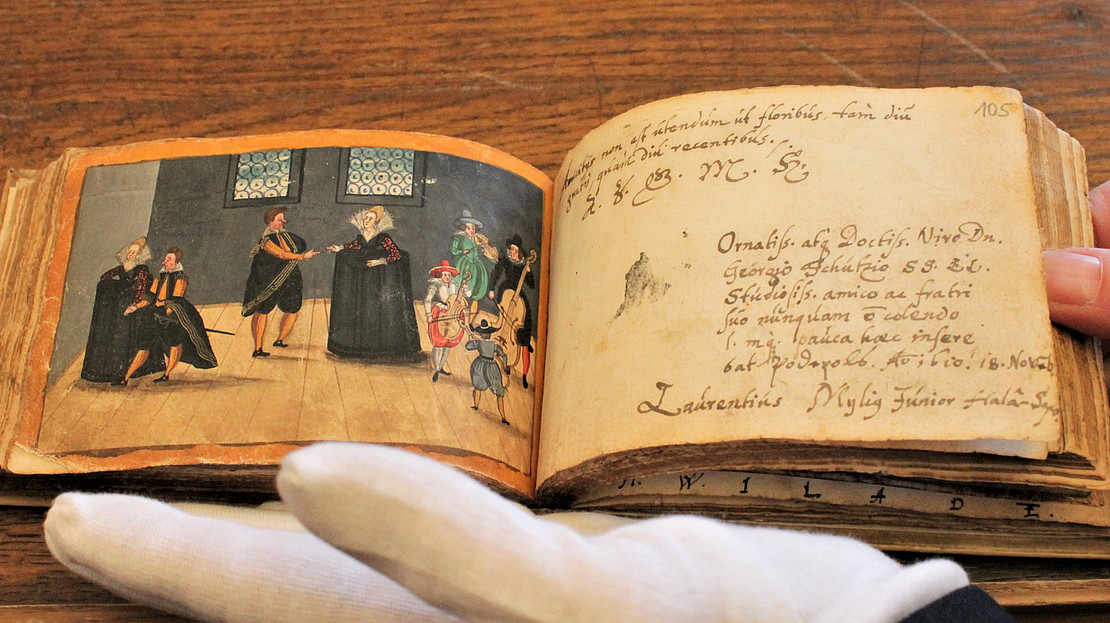 105
Amicitijs non est utendum ut floribus, tam diu
gratis, quam diu recentibus.
M.
Ornatiss. atq. Doctiss. Viro Dn.
Georgio Schultzio SS. LL.
Studiosiss. amico ac fratri
suo nunquam ō colendo
l. mq. pauca hæc insere
bat
18. Novemb
Laurentius Mylig Junior Halâ-
W. I L A D E.